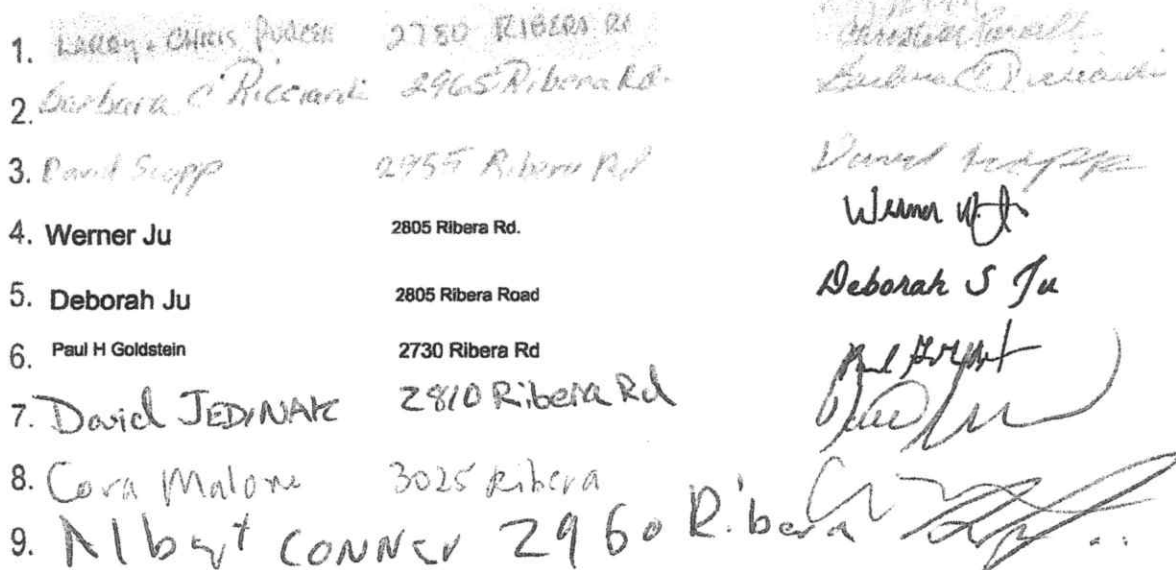 1. LARRY + CHRIS 2780 RIBERA RD
2. Barbara C Ricciardi 2965 Ribera Rd. Barbara C Ricciardi
3. David Scopp 2955 Ribera Rd David
4. Werner Ju 2805 Ribera Rd. Werner
5. Deborah Ju 2805 Ribera Road Deborah S Ju
6. Paul H Goldstein 2730 Ribera Rd Paul
7. David JEDINAK 2810 Ribera Rd
8. Cora Malone 3025 Ribera
9. Albert CONNER 2960 Ribera